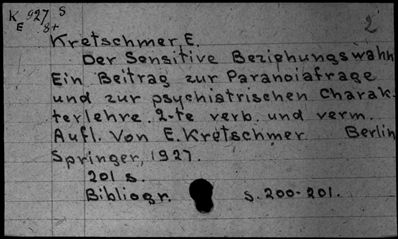 K 927 S
E 8+
2
Kretschmer E.
Der Sensitive Beziehungswahn
Ein Beitrag zur Paranoiafrage
und zur psychiatrischen Charak-
terlehre. 2-te verb. und verm.
Aufl. Von E. Kretschmer Berlin
Springer, 1927.
201 s.
Bibliogr. s. 200-201.